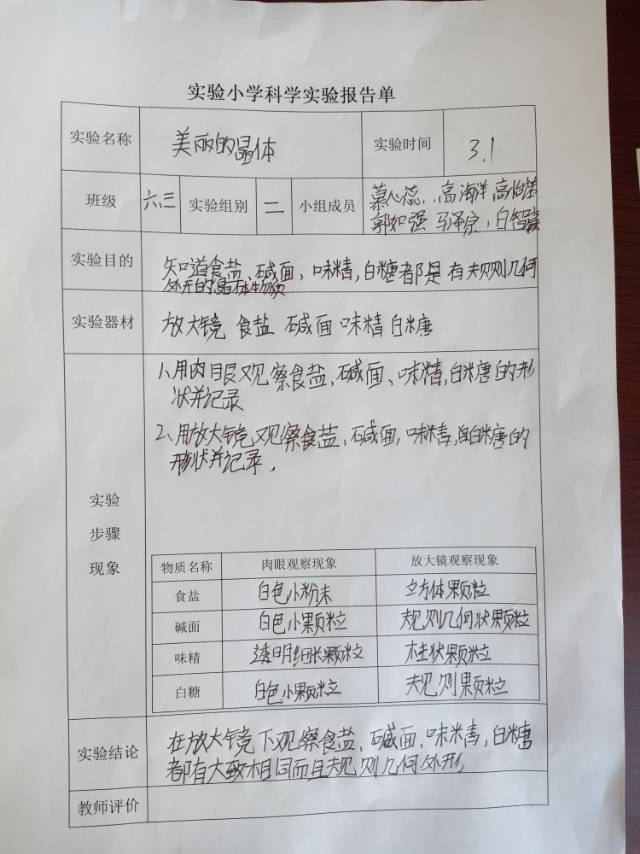 实验小学科学实验报告单
实验名称 美丽的晶体 实验时间 3.1
班级 六.三 实验组别 二 小组成员 慕心蕊 高海洋
郭如强 马泽宗
实验目的 知道食盐、碱面、味精,白糖都是有规则几何
外形的晶体物质
实验器材 放大镜 食盐 碱面 味精 白糖
实验步骤现象
1、用肉眼观察食盐、碱面、味精,白糖的形
状并记录
2、用放大镜观察食盐、碱面,味精,白糖的
形状并记录。
物质名称 肉眼观察现象 放大镜观察现象
食盐 白色小粉末 立方体颗粒
碱面 白色小颗粒 规则几何状颗粒
味精 透明细米颗粒 柱状颗粒
白糖 白色小颗粒 规则颗粒
实验结论 在放大镜下观察食盐、碱面、味精,白糖
都有大致相同而且规则几何外形
教师评价